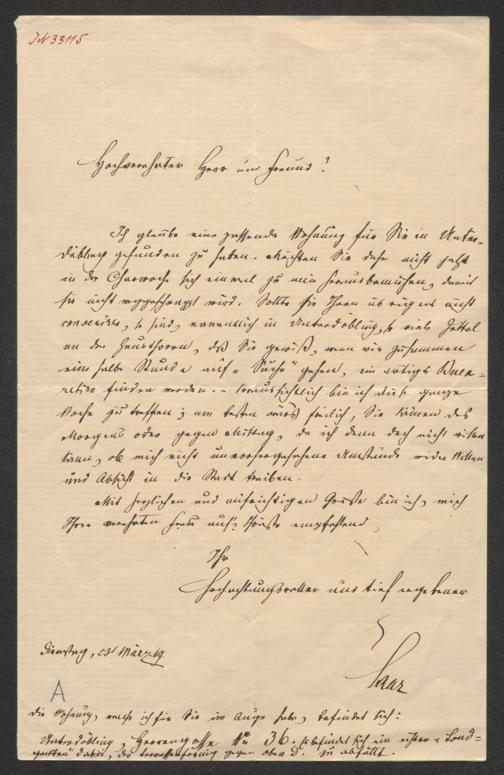 IN 33115
Hochverehrter Herr und Freund!
Ich glaube eine passende Wohnung für Sie in Unter-
döbling gefunden zu haben. Möchten Sie daher nicht jetzt
in der Charwoche sich einmal zu mir herausbemühen, damit
sie nicht weggeschnappt wird. Sollte sie Ihnen übrigens nicht
conveniren, so sind, namentlich in Unterdöbling, so viele Zettel
an den Hausthoren, daß Sie gewiß, wenn wir zusammen
eine halbe Stunde auf „Suche" gehen, ein artiges Buen-
retiro finden werden. – Voraussichtlich bin ich diese ganze
Woche zu treffen; am besten wird freilich, Sie kämen des
Morgens oder gegen Mittag, da ich denn doch nicht wissen
kann, ob mich nicht unvorhergesehene Umstände wider Willen
und Absicht in die Stadt treiben.
Mit herzlichen und aufrichtigen Grüße bin ich, mich
Ihrer verehrten Frau auf's Schönste empfehlend,
Ihr
Hochachtungsvoller und tief ergebener
Saar
Dienstag, 23 März 69
A
Die Wohnung, welche ich für Sie im Auge habe, befindet sich:
Unterdöbling Herrengasse Nr 36. Es befindet sich ein
dabei, der terrassenförmig gegen abfällt.